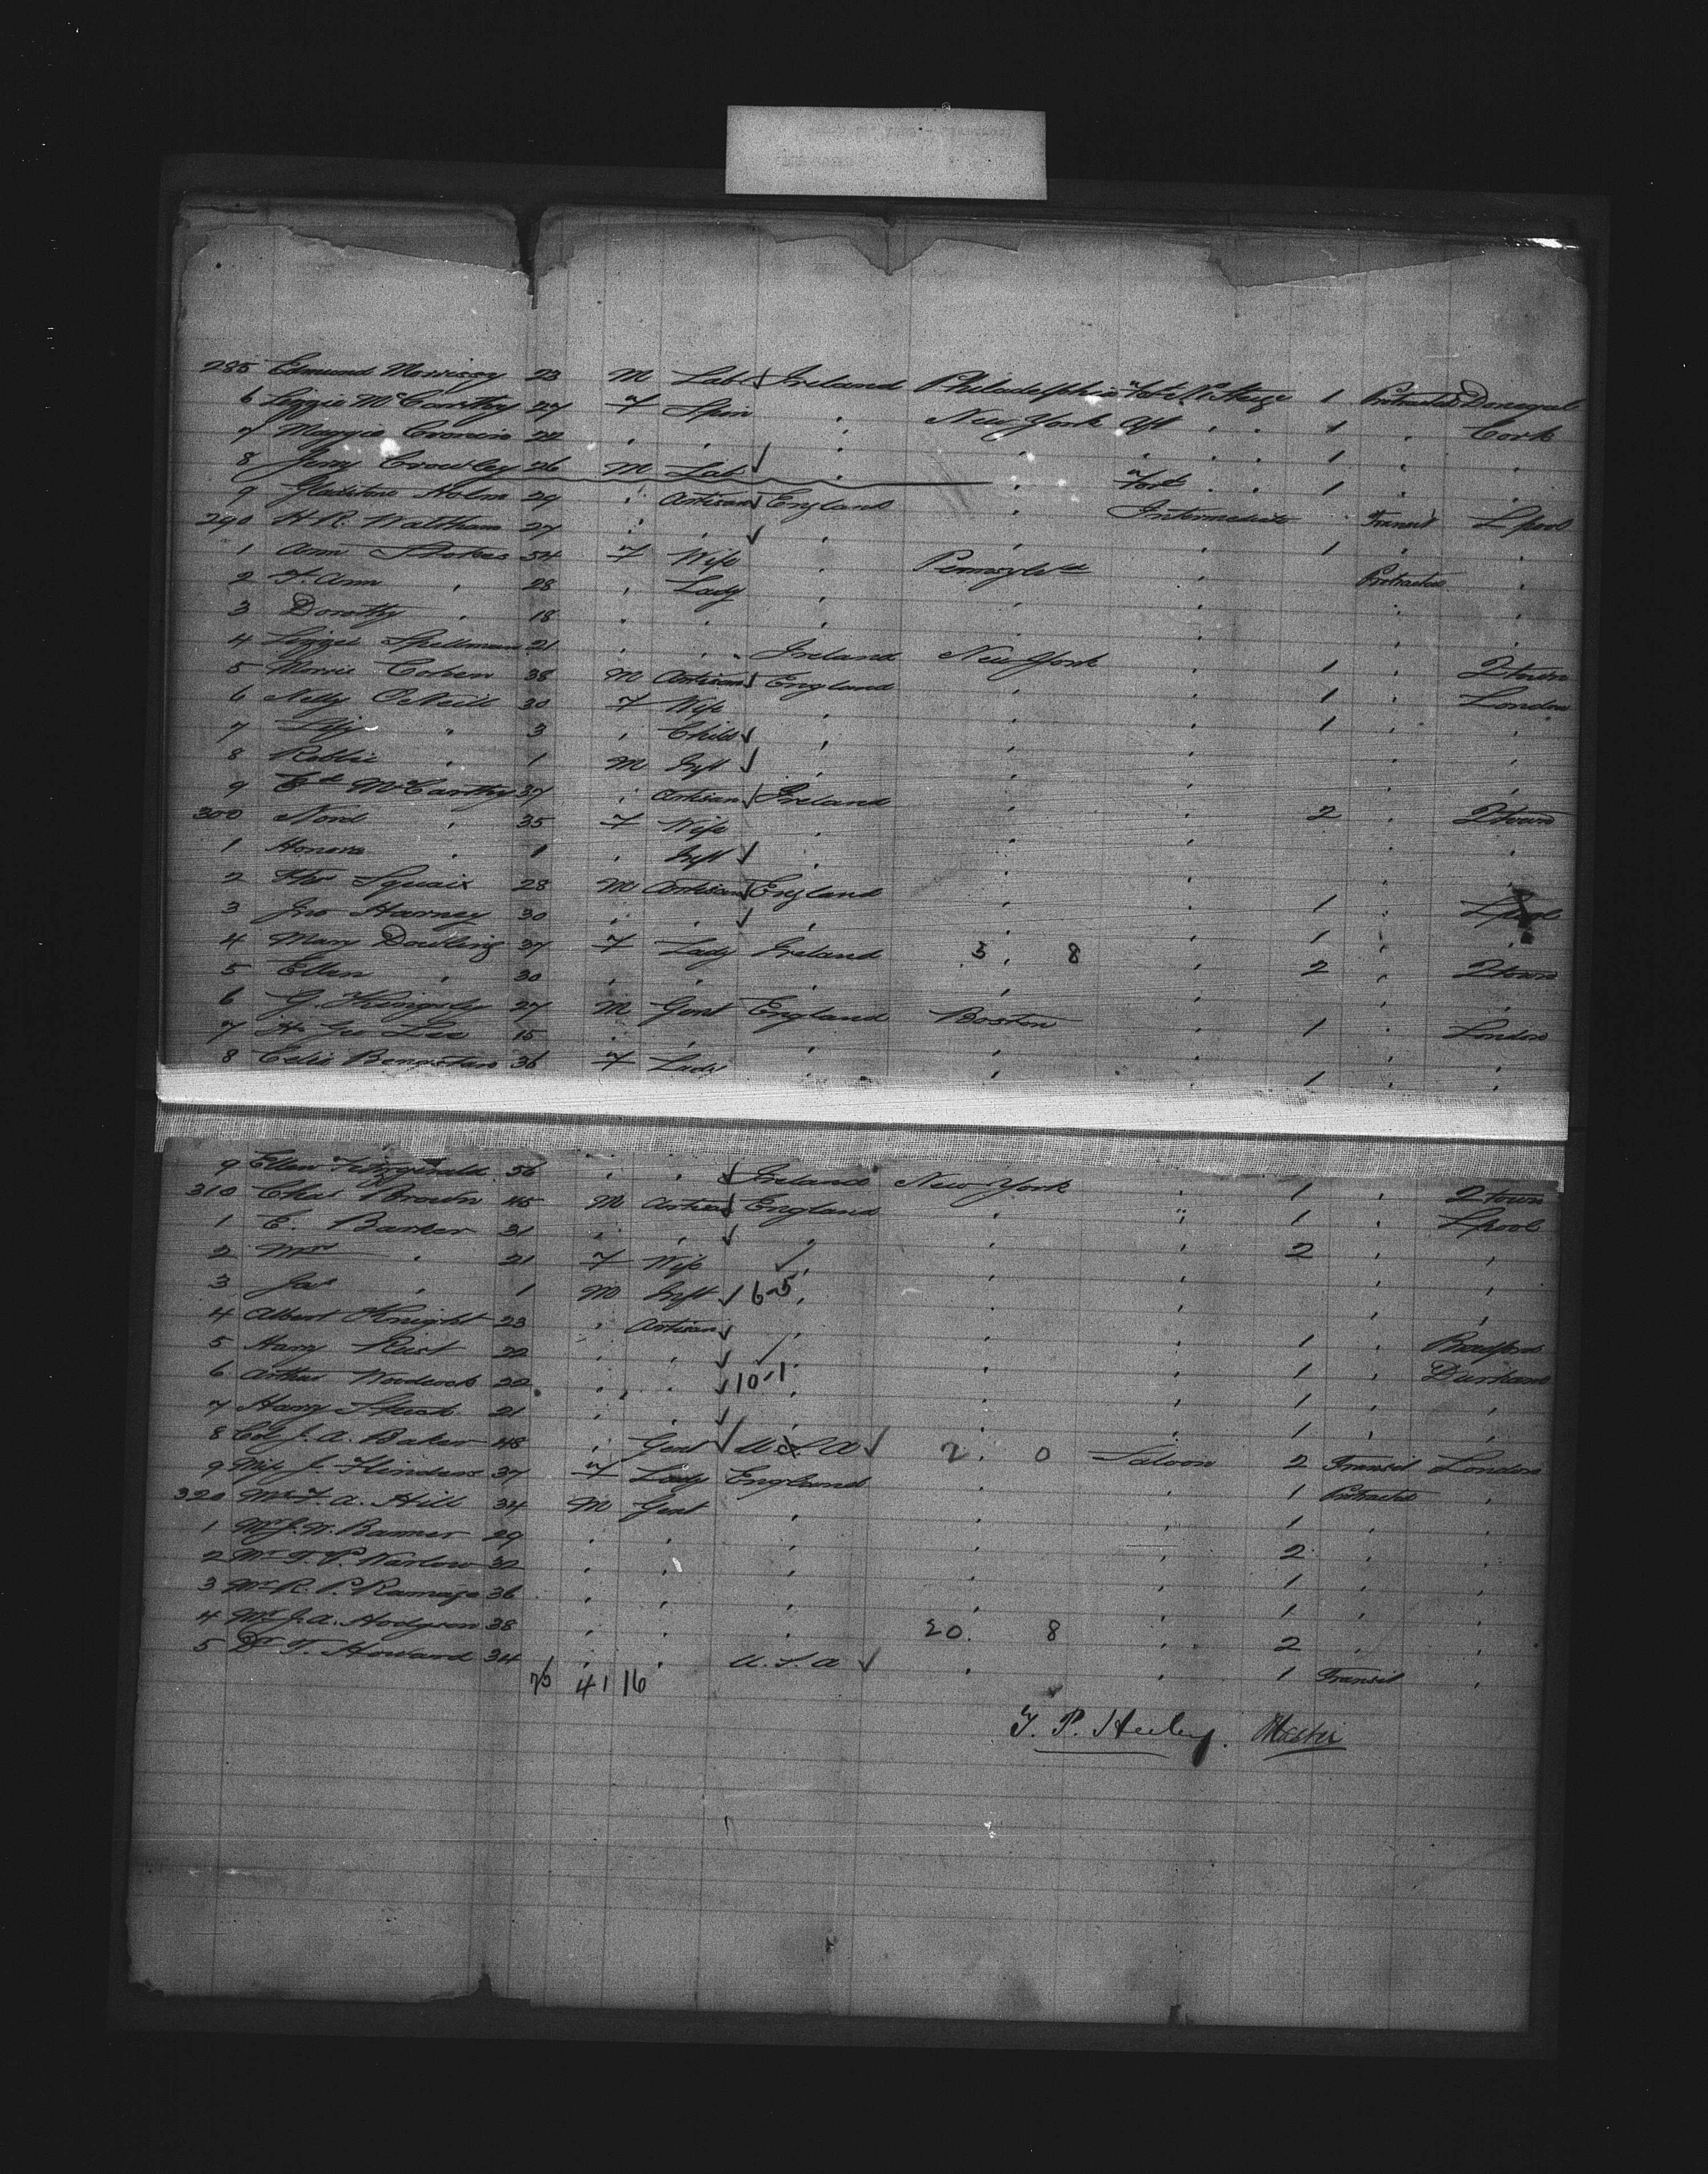 285 Edmund Morrissy 23 M Lab Ireland Philadelphia 1 Protracted Donegal
6 Lizzie McCarthy 27 F Spin " New York Aft " " 1 " Cork
7 Maggie Cronin 22 " " " " " " " 1 " "
8 Jerry Crowley 26 M Lab " " Ford " " 1 " "
9 Gladstone Holm 29 " Artisan England " Intermediate Transit Lpool
290 H. R. Waltham 27 " " " " " 1 " "
1 Ann Stokes 54 F Wife " Pennsylva " Protracted "
2 F. Ann " 28 " Lady " " " " "
3 Dorothy " 18 " " " " " " "
4 Lizzie Spellman 21 " " Ireland New York " 1 " Qtown
5 Morris Cohen 38 M Artisan England " " 1 " London
6 Nelly O'Neill 30 F Wife " " " 1 " "
7 " 3 " Child " " " " "
8 Robbie " 1 M Inft " " " " "
9 Ed McCarthy 37 " Artisan Ireland " " 2 " Qtown
300 Nord " 35 F Wife " " " " "
1 Honora " 1 " Inft " " " " "
2 Squair 28 M Artisan England " " 1 " Lpool
3 Jno Harney 30 " " " " " 1 " "
4 Mary Dowling 37 F Lady Ireland 3 " 8 " 2 " Qtown
5 Ellen " 30 " " " " " " "
6 G. Kingsly 27 M Gent England Boston " 1 " London
7 H. Geo Lee 15 " " " " " " "
8 Celie 36 F Lady " " " 1 " "
9 Ellen Fitzgerald 56 " " Ireland New York " 1 " Qtown
310 Chas Brown 45 M Artisan England " " 1 " Lpool
1 E. Barker 31 " " " " " 2 " "
2 Mrs " 21 F Wife " " " " "
3 Jas " 1 M Inft 6-5 " " " " "
4 Albert Knight 23 " Artisan " " " 1 " Bradford
5 Harry 22 " " " " " 1 " Durham
6 Arthur Woodcock 22 " " 10-1 " " " 1 " "
7 Harry 21 " " " " " 1 " "
8 Col J. A. Baker 48 " Gent U.S.A 2 " 0 Saloon 2 Transit London
9 Miss J. Flinders 37 F Lady England " " 1 Protracted "
320 Mr F. A. Hill 34 M Gent " " " 1 " "
1 Mr J. W. Banner 29 " " " " " 2 " "
2 Mr T. P. Narlow 32 " " " " " 1 " "
3 Mr R. P. Ramage 36 " " " " " 1 " "
4 Mr J. A. Hodgson 38 " " " 20 " 8 " 2 " "
5 Dr T. Howard 34 " " U.S.A " " 1 Transit "
41 16
T. P. Heeley. Master